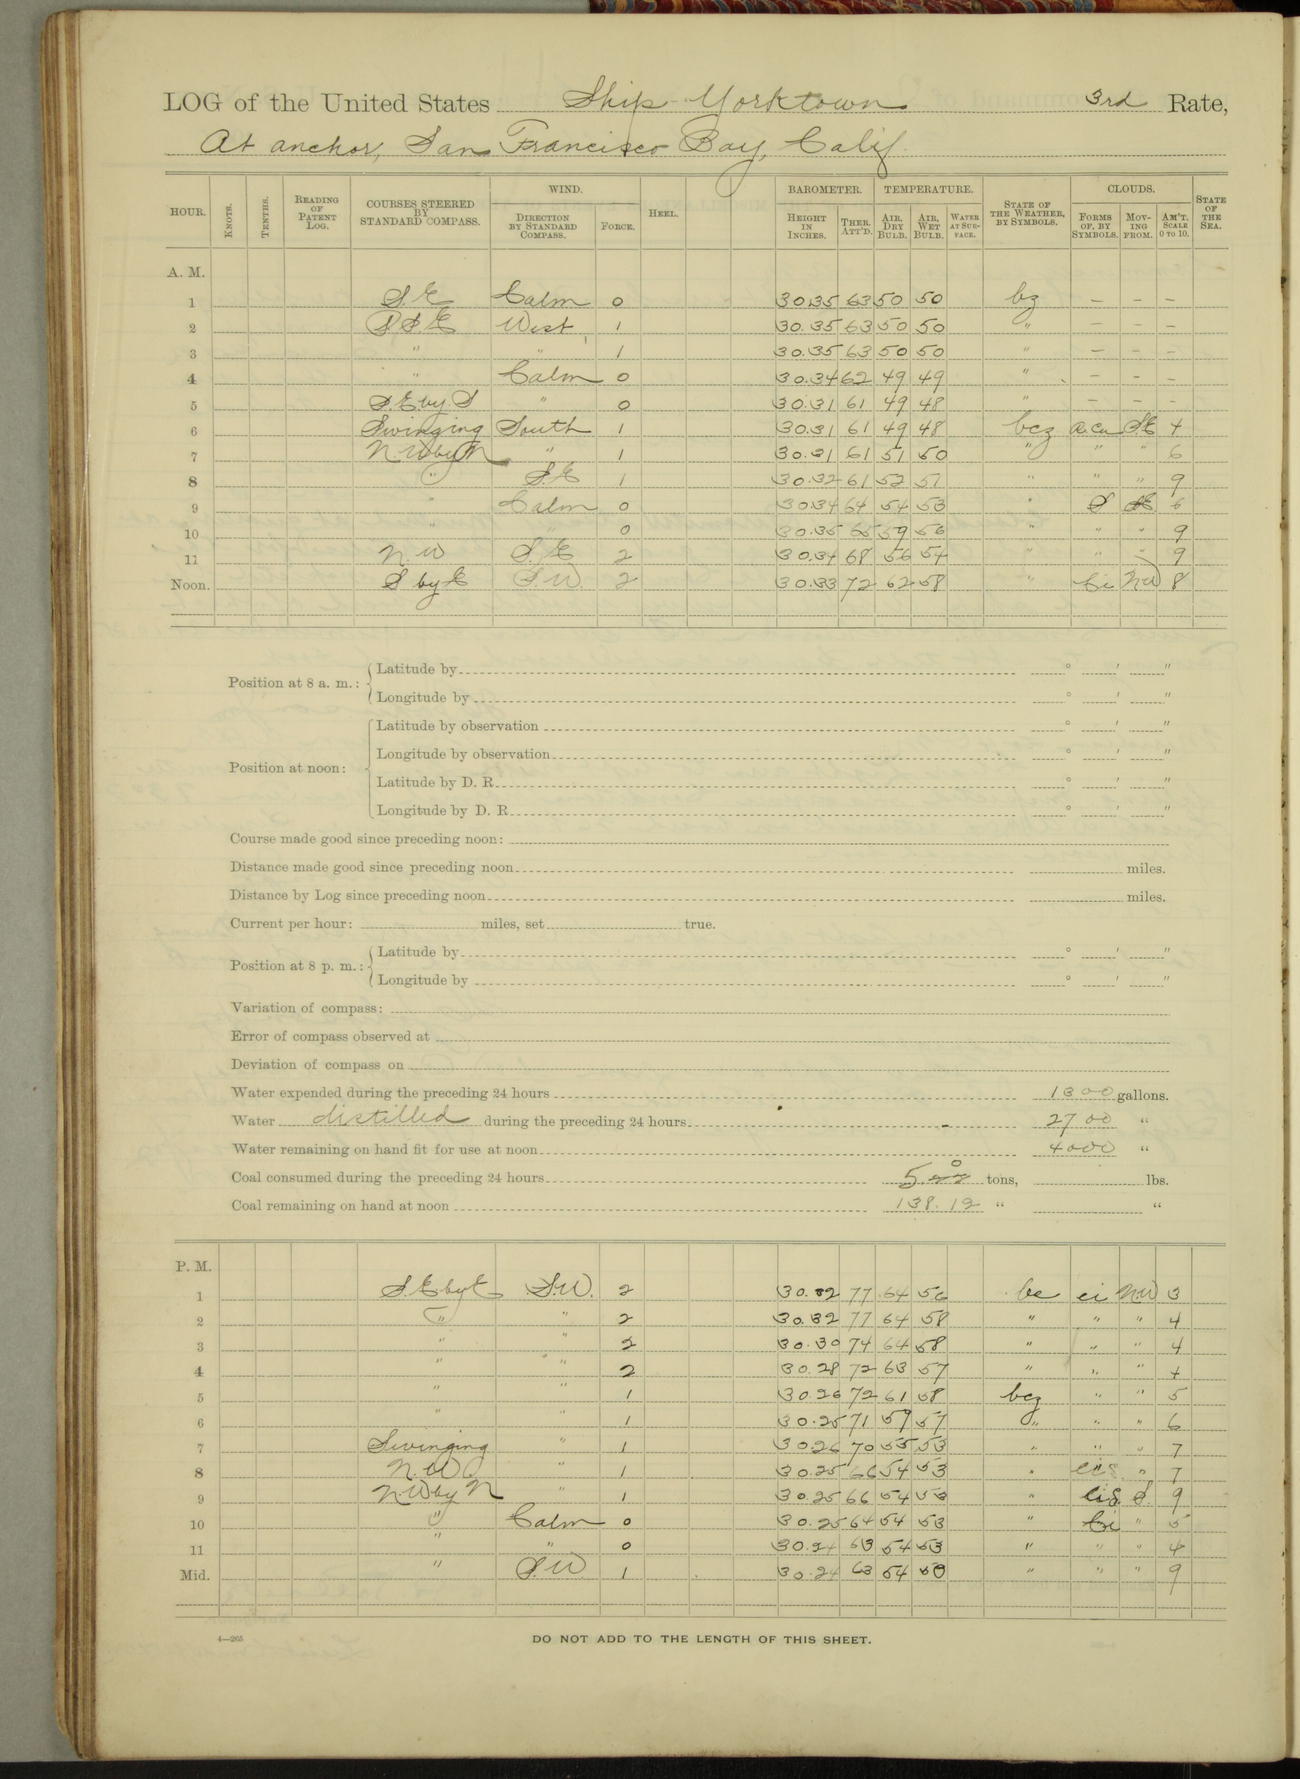 LOG of the United States Ship Yorktown 3rd Rate,
At anchor, San Francisco Bay, Calif.
HOUR. KNOTS. TENTHS. READING OF PATENT LOG. COURSES STEERED BY STANDARD COMPASS. WIND. DIRECTION BY STANDARD COMPASS. FORCE. HEEL. BAROMETER. HEIGHT IN INCHES. THER. ATT'D. TEMPERATURE. AIR, DRY BULB. AIR, WET BULB. WATER AT SURFACE. STATE OF THE WEATHER, BY SYMBOLS. CLOUDS. FORMS OF, BY SYMBOLS. MOVING FROM. AM'T. SCALE 0 TO 10. STATE OF THE SEA.
A. M.
1 S.E Calm 0 30.35 63 50 50 bz – – –
2 SSE West 1 30.35 63 50 50 " – – –
3 " " 1 30.35 63 50 50 " – – –
4 " Calm 0 30.34 62 49 49 " – – –
5 S.E by S " 0 30.31 61 49 48 " – – –
6 Swinging South 1 30.31 61 49 48 bcz a cu S.E 4
7 N.W by N " 1 30.31 61 51 50 " " " 6
8 " S.E 1 30.32 61 52 51 " " " 9
9 " Calm 0 30.34 64 54 53 " S 6
10 " " 0 30.35 65 59 56 " " " 9
11 N.W S.E 2 30.34 68 56 54 " " " 9
Noon. S by E S.W. 2 30.33 72 62 58 " Ci NW 8
Position at 8 a. m.: Latitude by ° ' "
Longitude by ° ' "
Position at noon: Latitude by observation ° ' "
Longitude by observation ° ' "
Latitude by D. R. ° ' "
Longitude by D. R. ° ' "
Course made good since preceding noon:
Distance made good since preceding noon miles.
Distance by Log since preceding noon miles.
Current per hour: miles, set true.
Position at 8 p. m.: Latitude by ° ' "
Longitude by ° ' "
Variation of compass:
Error of compass observed at
Deviation of compass on
Water expended during the preceding 24 hours 1300 gallons.
Water distilled during the preceding 24 hours 2700 "
Water remaining on hand fit for use at noon 4000 "
Coal consumed during the preceding 24 hours 5.0 tons, lbs.
Coal remaining on hand at noon 138.12 " "
P. M.
1 S.E by E S.W. 2 30.32 77 64 56 bc ci N.W 3
2 " " 2 30.32 77 64 58 " " " 4
3 " " 2 30.30 74 64 58 " " " 4
4 " " 2 30.28 72 63 57 " " " 4
5 " " 1 30.26 72 61 58 bcz " " 5
6 " " 1 30.25 71 59 57 " " " 6
7 Swinging " 1 30.26 70 55 53 " " " 7
8 N.W " 1 30.25 66 54 53 " ci s " 7
9 N.W by N " 1 30.25 66 54 53 " ci s S. 9
10 " Calm 0 30.25 64 54 53 " Ci " 5
11 " " 0 30.24 63 54 53 " " " 4
Mid. " S.W 1 30.24 63 54 50 " " " 9
4—265 DO NOT ADD TO THE LENGTH OF THIS SHEET.